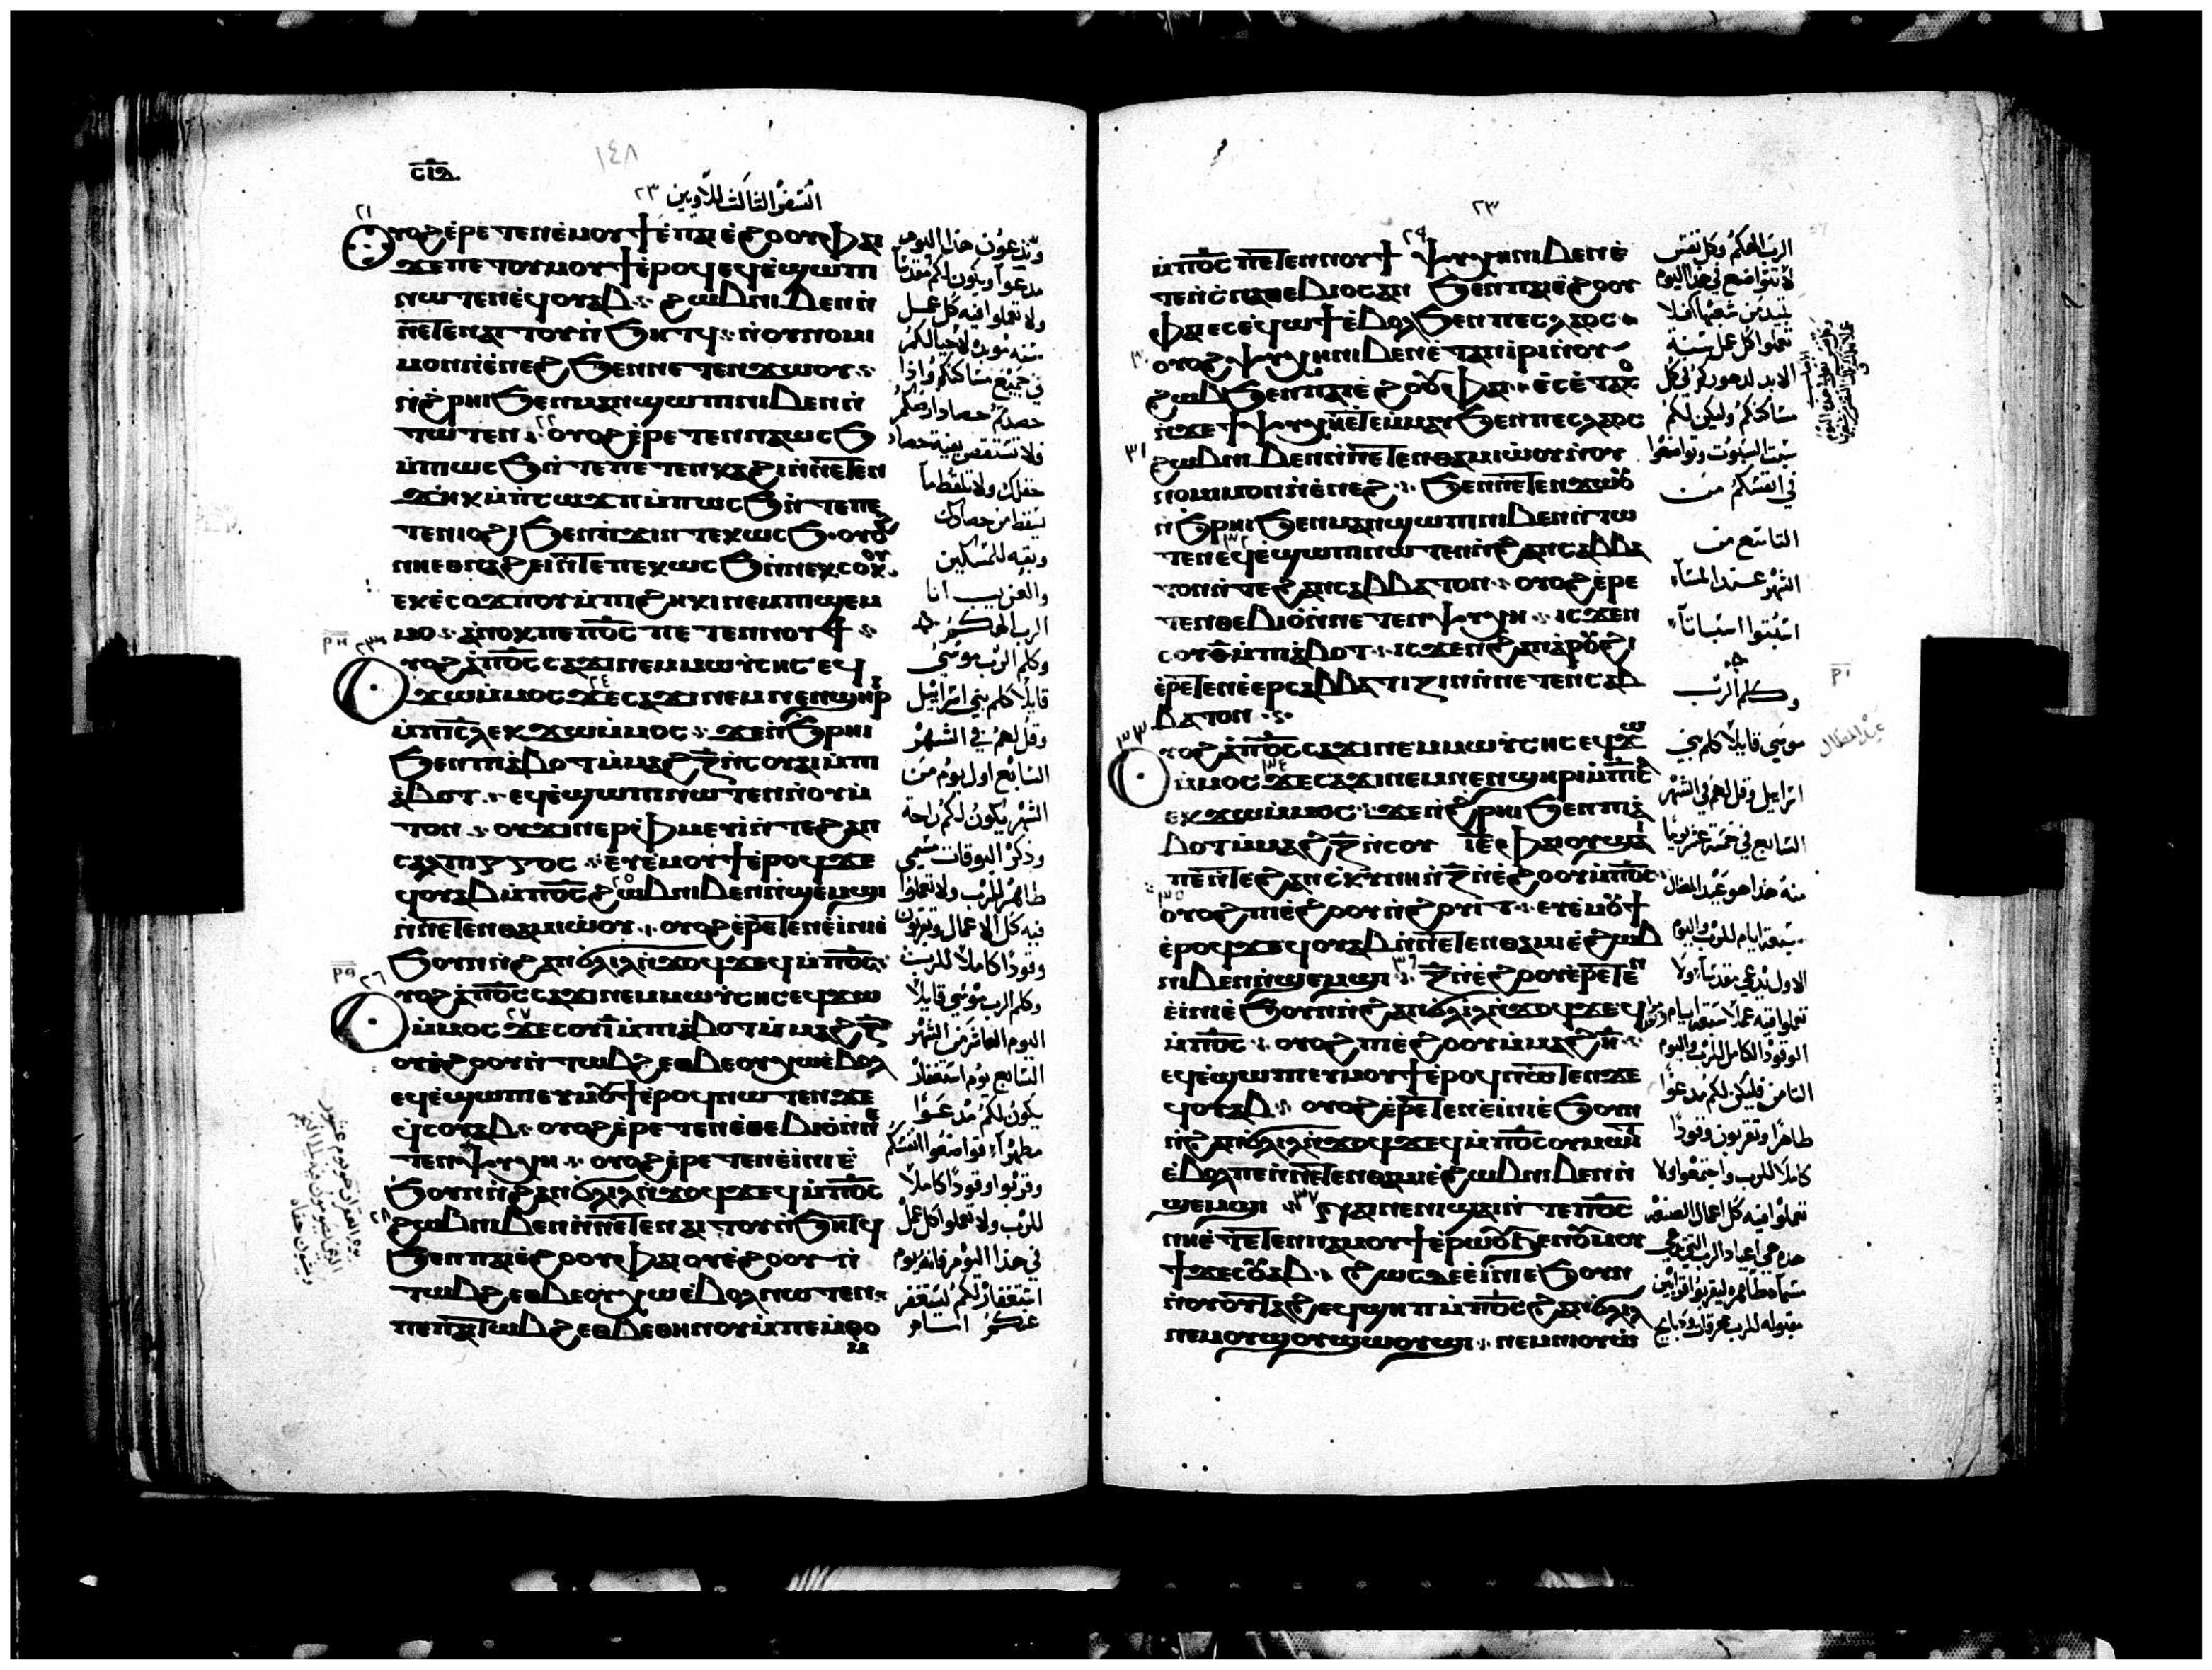 ⲥⲓⲑ
١٤٨
السفر الثالث للاويين ٢٣
٢١
ⲟⲩⲟϩ ⲉⲣⲉⲧⲉⲛⲉⲙⲟⲩϯ ⲉⲡⲁⲓⲉϩⲟⲟⲩ ⲫⲁⲓ
ϫⲉ ⲡⲉⲧⲟⲩⲙⲟⲩϯ ⲉⲣⲟϥ ⲉϥⲉϣⲱⲡⲓ
ⲛⲱⲧⲉⲛ ⲉϥⲟⲩⲁⲃ ϩⲱⲃ ⲛⲓⲃⲉⲛ ⲛ
ⲛⲉⲧⲉⲛⲁⲓⲧⲟⲩ ⲛϧⲏⲧϥ ⲛⲟⲩⲛⲟⲙⲓ
ⲙⲟⲛ ⲛⲉⲛⲉϩ ϧⲉⲛ ⲛⲉⲧⲉⲛϫⲱⲟⲩ
ⲛϩⲣⲏⲓ ϧⲉⲛ ⲙⲁⲛϣⲱⲡⲓ ⲛⲓⲃⲉⲛ ⲛ
ⲧⲱⲧⲉⲛ ٢٢ ⲟⲩⲟϩ ⲉⲣⲉⲧⲉⲛⲛⲁⲱⲥϧ
ⲙⲡⲱⲥϧ ⲛⲧⲉ ⲡⲉⲧⲉⲛⲕⲁϩⲓ ⲛⲛⲉⲧⲉⲛ
ϫⲏⲕ ⲙⲡⲥⲱϫⲡ ⲙⲡⲱⲥϧ ⲛⲧⲉ ⲡⲉ
ⲧⲉⲛⲓⲟϩⲓ ϧⲉⲛ ⲡϫⲓⲛⲧⲉⲕⲱⲥϧ ⲟⲩⲟϩ
ⲛⲏⲉⲑⲛⲁϩⲉⲓ ⲛⲧⲉ ⲡⲉⲕⲱⲥϧ ⲛⲛⲉⲕⲥⲟⲕⲟⲩ
ⲉⲕⲉⲥⲟϫⲡⲟⲩ ⲙⲡⲓϩⲏⲕⲓ ⲛⲉⲙ ⲡⲓϣⲉⲙ
ⲙⲟ ⲁⲛⲟⲕ ⲡⲉ ⲡⲟ̅ⲥ̅ ⲡⲉⲧⲉⲛⲛⲟⲩϯ
ⲣⲏ ٢٣
ⲟⲩⲟϩ ⲁⲡⲟ̅ⲥ̅ ⲥⲁϫⲓ ⲛⲉⲙ ⲙⲱⲩⲥⲏⲥ ⲉϥ
ϫⲱ ⲙⲙⲟⲥ ٢٤ ϫⲉ ⲥⲁϫⲓ ⲛⲉⲙ ⲛⲉⲛϣⲏⲣⲓ
ⲙⲡⲓ̅ⲥ̅ⲗ ⲉⲕϫⲱ ⲙⲙⲟⲥ ϫⲉ ⲛϧⲣⲏⲓ
ϧⲉⲛ ⲡⲓⲁⲃⲟⲧ ⲙⲙⲁϩⲍ̅ ⲛⲥⲟⲩⲁⲓ ⲙⲡⲓ
ⲁⲃⲟⲧ ⲉϥⲉϣⲱⲡⲓ ⲛⲱⲧⲉⲛ ⲛⲟⲩⲙ
ⲧⲟⲛ ⲟⲩϫⲓⲛⲉⲣⲫⲙⲉⲩⲓ ⲛⲧⲉ ϩⲁⲛ
ⲥⲁⲗⲡⲓⲅⲅⲟⲥ ⲉⲩⲉⲙⲟⲩϯ ⲉⲣⲟϥ ϫⲉ
ϥⲟⲩⲁⲃ ⲙⲡⲟ̅ⲥ̅ ٢٥ ϩⲱⲃ ⲛⲓⲃⲉⲛ ⲛϣⲉⲙϣⲓ
ⲛⲛⲉⲧⲉⲛⲑⲁⲙⲓⲱⲟⲩ ⲟⲩⲟϩ ⲉⲣⲉⲧⲉⲛⲉⲓⲛⲓ
ⲉϧⲟⲩⲛ ⲛϩⲁⲛϭⲗⲓⲗ ⲛϫⲟϥϫⲉϥ ⲙⲡⲟ̅ⲥ̅
ⲣⲑ ٢٦
ⲟⲩⲟϩ ⲁⲡⲟ̅ⲥ̅ ⲥⲁϫⲓ ⲛⲉⲙ ⲙⲱⲩⲥⲏⲥ ⲉϥϫⲱ
ⲙⲙⲟⲥ ٢٧ ϫⲉ ⲥⲟⲩⲓ̅ ⲙⲡⲓⲁⲃⲟⲧ ⲙⲙⲁϩⲍ̅
ⲟⲩⲉϩⲟⲟⲩ ⲛⲧⲱⲃϩ ⲉⲑⲃⲉ ⲟⲩⲭⲱ ⲉⲃⲟⲗ
ⲉϥⲉϣⲱⲡⲓ ⲉⲩⲙⲟⲩϯ ⲉⲣⲟϥ ⲛⲱⲧⲉⲛ ϫⲉ
ϥⲥⲟⲩⲁⲃ ⲟⲩⲟϩ ⲉⲣⲉⲧⲉⲛⲉⲑⲉⲃⲓⲟ ⲛⲛⲉ
ⲧⲉⲛⲯⲩⲭⲏ ⲟⲩⲟϩ ⲉⲣⲉⲧⲉⲛⲉⲓⲛⲓ ⲉ
ϧⲟⲩⲛ ⲛϩⲁⲛϭⲗⲓⲗ ⲛϫⲟϥϫⲉϥ ⲙⲡⲟ̅ⲥ̅
٢٨ ϩⲱⲃ ⲛⲓⲃⲉⲛ ⲛⲛⲉⲧⲉⲛⲁⲓⲧⲟⲩ ⲛϧⲏⲧϥ
ϧⲉⲛ ⲡⲁⲓⲉϩⲟⲟⲩ ⲫⲁⲓ ⲟⲩⲉϩⲟⲟⲩ ⲛ
ⲧⲱⲃϩ ⲉⲑⲃⲉ ⲟⲩⲭⲱ ⲉⲃⲟⲗ ⲛⲱⲧⲉⲛ
ⲡⲉⲡⲁⲓⲧⲱⲃϩ ⲉⲑⲃⲉ ⲑⲏⲛⲟⲩ ⲙⲡⲉⲙⲑⲟ
وتدعون هذا اليوم
مدعوا ويكون لكم مقدسا
ولا تعملوا فيه كل عمل
سنه مؤبده لاجيالكم
في جميع مساكنكم واذا
حصدتم حصاد ارضكم
فلا تستقصى بقية حصاد
حقلك ولا تلقط ما
يسقط من حصادك
وبقيه للمسكين
والغريب انا
الرب الهكم
وكلم الرب موسى
قايلا كلم بني اسراييل
وقل لهم في الشهر
السابع اول يوم من
الشهر يكون لكم راحة
وذكر البوقات مسمى
طاهر للرب ولا تعملوا
فيه كل الاعمال وتقربون
وقودا كاملا للرب
وكلم الرب موسى قايلا
اليوم العاشر من الشهر
السابع يوم استغفار
يكون لكم مدعوا
مطهرا تواضعوا انفسكم
وقربوا وقودا كاملا
للرب ولا تعملوا كل عمل
في هذا اليوم فانه يوم
استغفار لكم ليستغفر
عنكم امام
٢٣
ⲙⲡⲟ̅ⲥ̅ ⲡⲉⲧⲉⲛⲛⲟⲩϯ ٢٩ ⲯⲩⲭⲏ ⲛⲓⲃⲉⲛ ⲉ
ⲧⲉⲛⲥⲛⲁⲑⲉⲃⲓⲟⲥ ⲁⲛ ϧⲉⲛ ⲡⲁⲓⲉϩⲟⲟⲩ
ⲫⲁⲓ ⲉⲥⲉϥⲱϯ ⲉⲃⲟⲗ ϧⲉⲛ ⲡⲉⲥⲗⲁⲟⲥ
٣٠ ⲟⲩⲟϩ ⲯⲩⲭⲏ ⲛⲓⲃⲉⲛ ⲉⲧⲛⲁⲓⲣⲓ ⲛⲟⲩ
ϩⲱⲃ ϧⲉⲛ ⲡⲁⲓⲉϩⲟⲟⲩ ⲫⲁⲓ ⲉⲥⲉⲧⲁⲕⲟ
ⲛϫⲉ ϯⲯⲩⲭⲏ ⲉⲧⲉⲙⲙⲁⲩ ϧⲉⲛ ⲡⲉⲥⲗⲁⲟⲥ
٣١ ϩⲱⲃ ⲛⲓⲃⲉⲛ ⲛⲛⲉⲧⲉⲛⲑⲁⲙⲓⲱⲟⲩ ⲛⲟⲩ
ⲛⲟⲙⲓⲙⲟⲛ ⲛⲉⲛⲉϩ ϧⲉⲛ ⲛⲉⲧⲉⲛϫⲱⲟⲩ
ⲛϧⲣⲏⲓ ϧⲉⲛ ⲙⲁⲛϣⲱⲡⲓ ⲛⲓⲃⲉⲛ ⲛⲧⲱ
ⲧⲉⲛ ٣٢ ⲉϥⲉϣⲱⲡⲓ ⲛⲱⲧⲉⲛ ⲛϩⲁⲛⲥⲁⲃⲃⲁ
ⲧⲟⲛ ⲛⲧⲉ ϩⲁⲛⲥⲁⲃⲃⲁⲧⲟⲛ ⲟⲩⲟϩ ⲉⲣⲉ
ⲧⲉⲛⲑⲉⲃⲓⲟ ⲛⲛⲉⲧⲉⲛⲯⲩⲭⲏ ⲓⲥϫⲉⲛ
ⲥⲟⲩⲑ̅ ⲙⲡⲓⲁⲃⲟⲧ ⲓⲥϫⲉⲛ ϩⲁⲛⲁⲣⲟⲩϩⲓ
ⲉⲣⲉⲧⲉⲛⲉⲉⲣⲥⲁⲃⲃⲁⲧⲓⲍⲓⲛ ⲛⲛⲉⲧⲉⲛⲥⲁⲃ
ⲃⲁⲧⲟⲛ
٣٣
ⲟⲩⲟϩ ⲁⲡⲟ̅ⲥ̅ ⲥⲁϫⲓ ⲛⲉⲙ ⲙⲱⲩⲥⲏⲥ ⲉϥϫⲱ
ⲙⲙⲟⲥ ٣٤ ϫⲉ ⲥⲁϫⲓ ⲛⲉⲙ ⲛⲉⲛϣⲏⲣⲓ ⲙⲡⲓ̅ⲥ̅ⲗ
ⲉⲕϫⲱ ⲙⲙⲟⲥ ϫⲉ ⲛϩⲣⲏⲓ ϧⲉⲛ ⲡⲓⲁ
ⲃⲟⲧ ⲙⲙⲁϩⲍ̅ ⲛⲥⲟⲩ ⲓ̅ⲉ̅ ⲫⲁⲓ ⲟⲩϣⲁⲓ
ⲡⲉ ⲛⲧⲉ ϩⲁⲛⲥⲕⲩⲛⲏ ⲛⲍ̅ ⲛⲉϩⲟⲟⲩ ⲙⲡⲟ̅ⲥ̅
٣٥ ⲟⲩⲟϩ ⲡⲓⲉϩⲟⲟⲩ ⲛϩⲟⲩⲓⲧ ⲉⲩⲉⲙⲟⲩϯ
ⲉⲣⲟϥ ϫⲉ ϥⲟⲩⲁⲃ ⲛⲛⲉⲧⲉⲛⲑⲁⲙⲓⲉ ϩⲱⲃ
ⲛⲓⲃⲉⲛ ⲛϣⲉⲙϣⲓ ٣٦ ⲍ̅ ⲛⲉϩⲟⲟⲩ ⲉⲣⲉⲧⲉⲛ
ⲉⲓⲛⲓ ⲉϧⲟⲩⲛ ⲛϩⲁⲛϭⲗⲓⲗ ⲛϫⲟϥϫⲉϥ
ⲙⲡⲟ̅ⲥ̅ ⲟⲩⲟϩ ⲡⲓⲉϩⲟⲟⲩ ⲙⲙⲁϩⲏ̅
ⲉϥⲉϣⲱⲡⲓ ⲉⲩⲙⲟⲩϯ ⲉⲣⲟϥ ⲛⲱⲧⲉⲛ ϫⲉ
ϥⲟⲩⲁⲃ ⲟⲩⲟϩ ⲉⲣⲉⲧⲉⲛⲉⲓⲛⲓ ⲉϧⲟⲩⲛ
ⲛϩⲁⲛϭⲗⲓⲗ ⲛϫⲟϥϫⲉϥ ⲙⲡⲟ̅ⲥ̅ ⲟⲩⲙⲱⲓⲧ
ⲉⲃⲟⲗ ⲡⲉ ⲛⲛⲉⲧⲉⲛⲑⲁⲙⲓⲉ ϩⲱⲃ ⲛⲓⲃⲉⲛ ⲛ
ϣⲉⲙϣⲓ ٣٧ ⲛⲁⲓ ⲛⲉ ⲛⲓϣⲁⲓ ⲛⲧⲉ ⲡⲟ̅ⲥ̅
ⲛⲏⲉⲧⲉⲧⲉⲛⲛⲁⲙⲟⲩϯ ⲉⲣⲱⲟⲩ ϧⲉⲛ ⲟⲩⲙⲟⲩ
ϯ ϫⲉ ⲥⲉⲟⲩⲁⲃ ϩⲱⲥⲇⲉ ⲉⲓⲛⲓ ⲉϧⲟⲩⲛ
ⲛⲟⲩⲟⲩⲧⲁϩ ⲉϥϣⲏⲡ ⲙⲡⲟ̅ⲥ̅ ϩⲁⲛϭⲗⲓⲗ
ⲛⲉⲙ ⲟⲩϣⲟⲩϣⲱⲟⲩϣⲓ ⲛⲉⲙ ⲛⲓⲟⲩⲱ
الرب الهكم وكل نفس
لا تتواضع في هذا اليوم
تبيد من شعبها فلا
تعملوا كل عمل سنة
الابد لدهوركم في كل
مساكنكم وليكن لكم
سبت السبوت وتواضعوا
في انفسكم من
التاسع من
الشهر عند المساء
اسبتوا اسباتا
وكلم الرب
موسى قايلا كلم بني
اسراييل وقل لهم في الشهر
السابع في خمسة عشر يوما
منه هذا هو عيد المظال
سبعة ايام للرب واليوم
الاول يدعى مقدسا ولا
تعملوا فيه عملا سبعة ايام
الوقود الكامل للرب واليوم
الثامن فليكن لكم مدعوا
طاهرا وتقربون وقودا
كاملا للرب واجتمعوا ولا
تعملوا فيه كل اعمال الصنعه
هذه هي اعياد الرب التي هي
مسماه طاهره ليقربوا قرابين
مقبوله للرب محرقات وذبايح
ⲣⲓ
عيد المظال